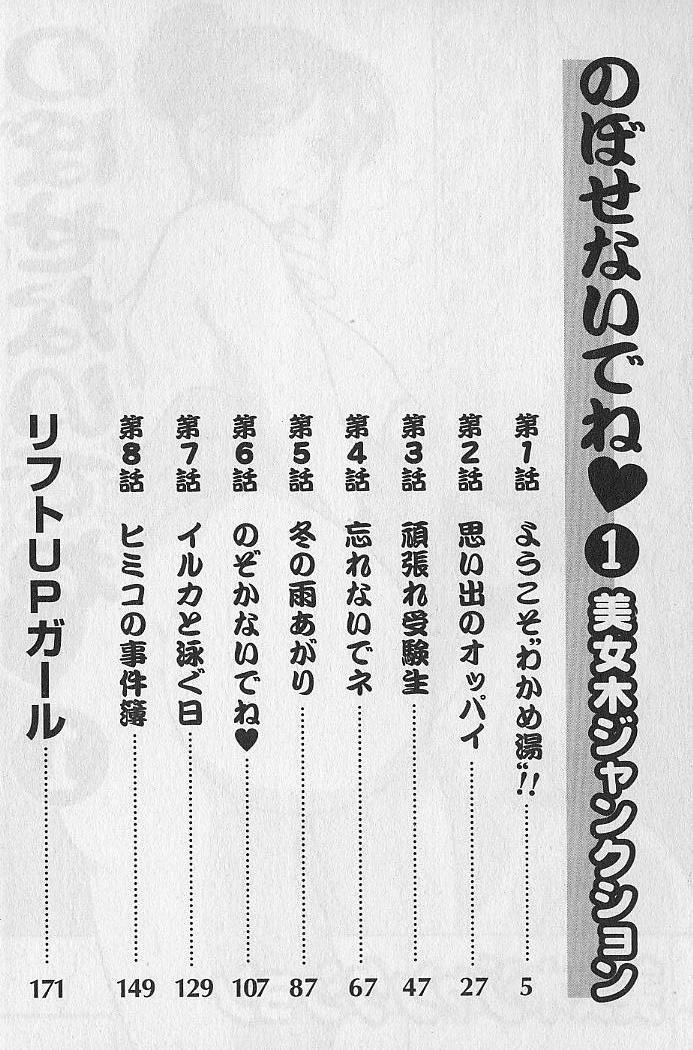 のぼせないでね♥① 美女木ジャンクション
第1話 ようこそ"わかめ湯"!! 5
第2話 思い出のオッパイ 27
第3話 頑張れ受験生 47
第4話 忘れないでネ 67
第5話 冬の雨あがり 87
第6話 のぞかないでね♥ 107
第7話 イルカと泳ぐ日 129
第8話 ヒミコの事件簿 149
リフトUPガール 171